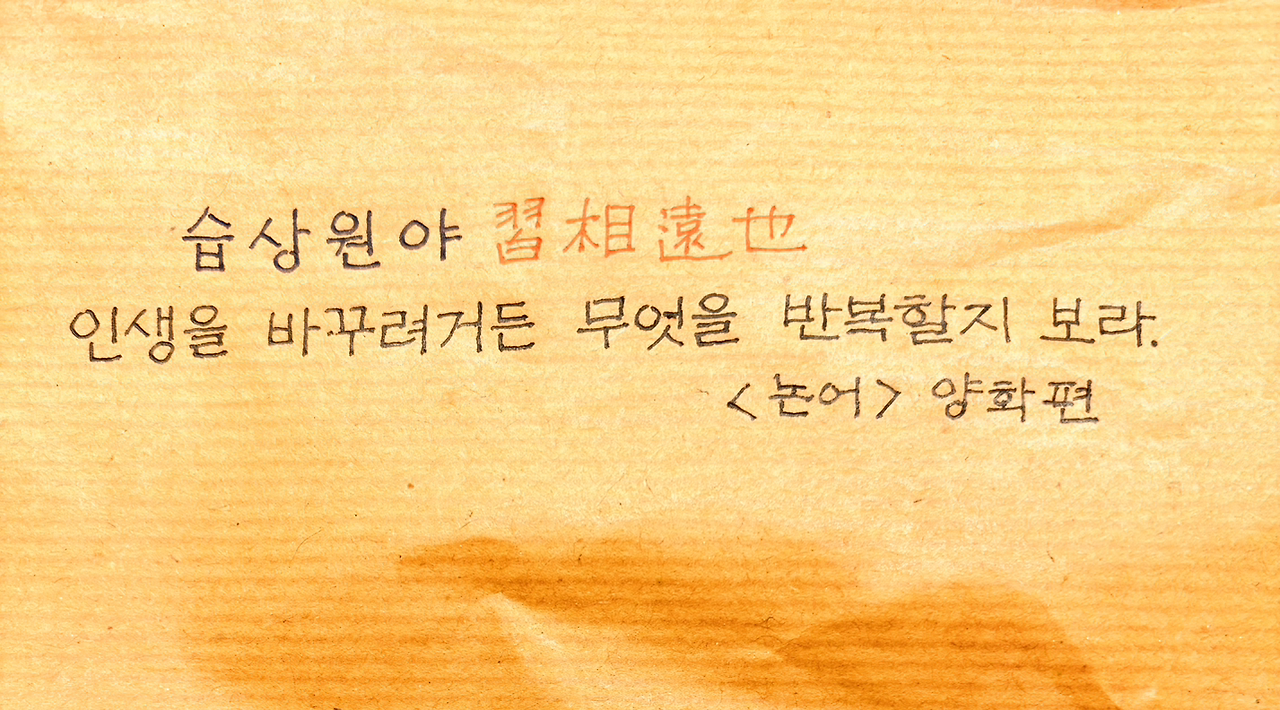 습상원야 習相遠也
인생을 바꾸려거든 무엇을 반복할지 보라.
<논어> 양화편